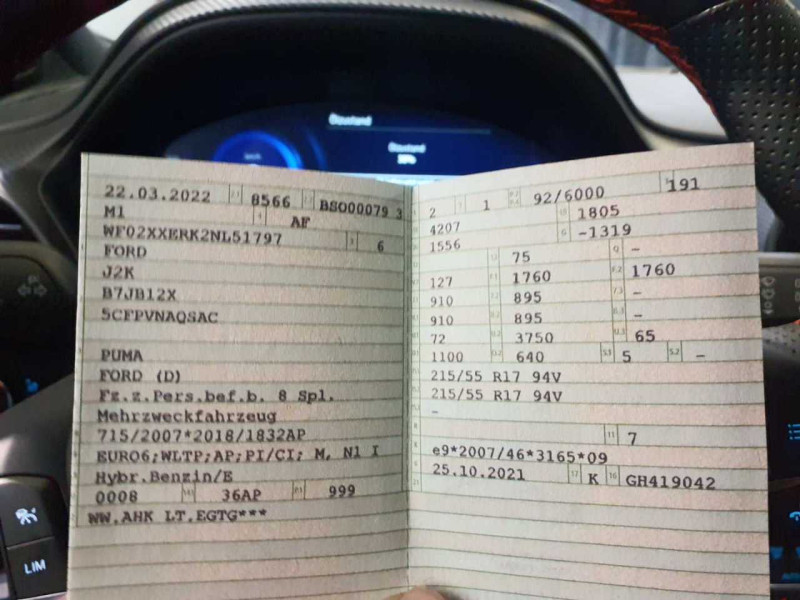 22.03.2022 8566 BSO00079 3
M1 AF
WF02XXERK2NL51797 6
FORD
J2K
B7JB12X
5CFPVNAQSAC
PUMA
FORD (D)
Fz.z.Pers.bef.b. 8 Spl.
Mehrzweckfahrzeug
715/2007*2018/1832AP
EURO6;WLTP;AP;PI/CI; M, N1 I
Hybr.Benzin/E
0008 36AP 999
WW.AHK LT.EGTG***
2 1 92/6000 191
4207 1805
1556 -1319
75 -
127 1760 1760
910 895 -
910 895 -
72 3750 65
1100 640 5 -
215/55 R17 94V
215/55 R17 94V
-
7
e9*2007/46*3165*09
25.10.2021 K GH419042
LIM